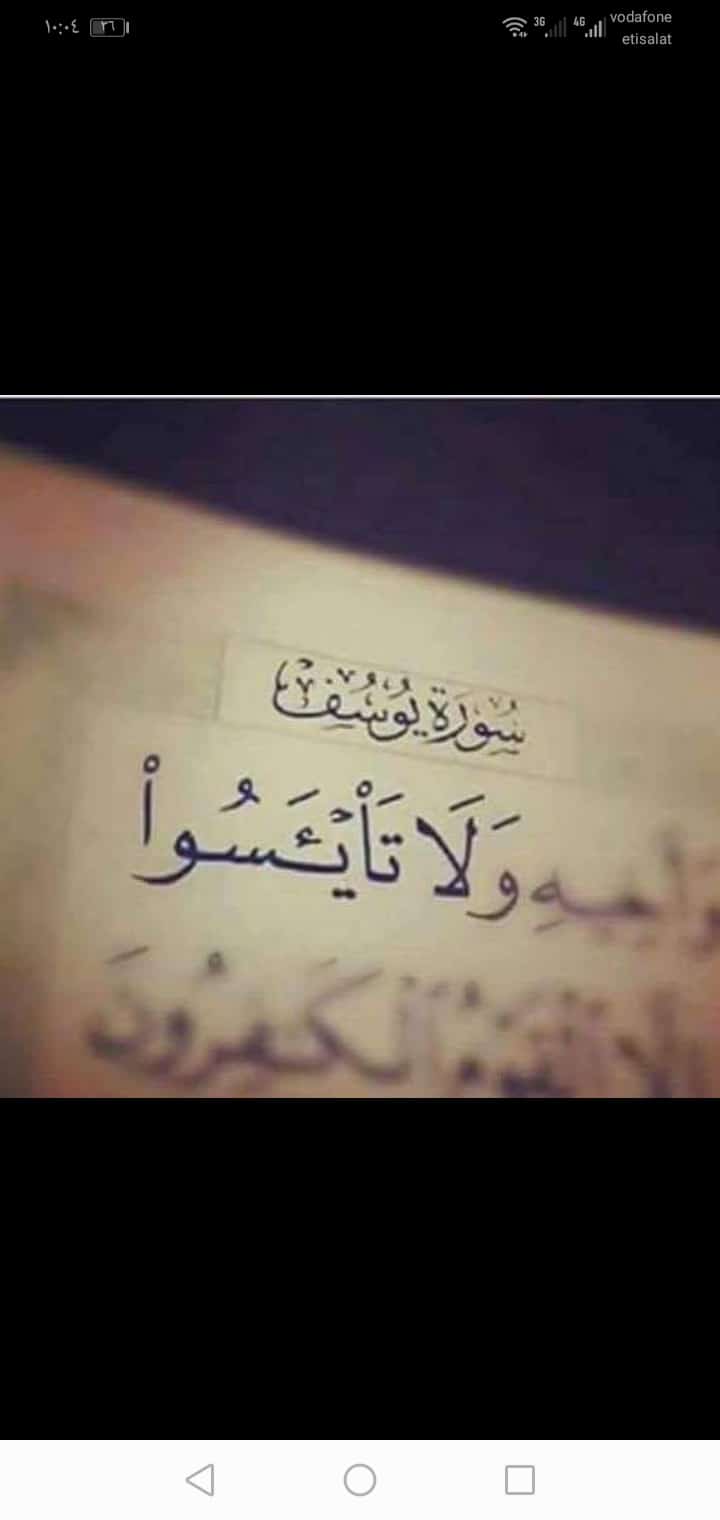 ١٠:٠٤ ٣٦ 3G 4G vodafone
etisalat
سُورَةُ يُوسُفَ
وَلَا تَا۟يۡـَٔسُوا۟
ٱلۡكَـٰفِرُونَ